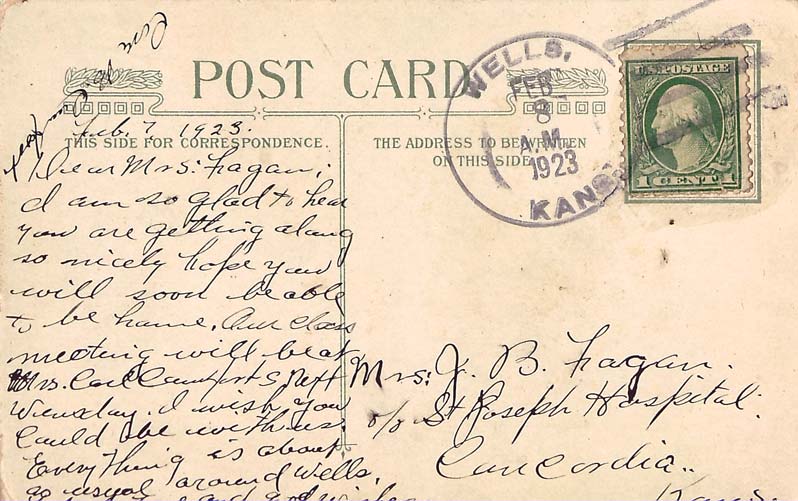 POST CARD
THIS SIDE FOR CORRESPONDENCE.
THE ADDRESS TO BE WRITTEN
ON THIS SIDE
WELLS,
FEB
8
A.M.
1923
KANS
U.S. POSTAGE
1 CENT 1
Feb. 7, 1923.
Dear Mrs: Fagan;
I am so glad to hear
you are getting along
so nicely hope you
will soon be able
to be home. Our class
meeting will be at
Mrs. Carl next
Wensday. I wish you
could be with us.
Everything is about
as usual around Wells.
and
Mrs: J. B. Fagan.
c/o St Joseph Hospital.
Concordia.
Kans.